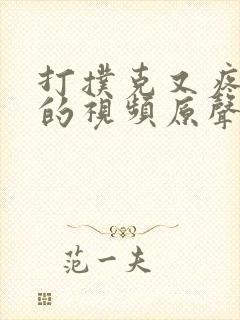 打撲克又疼
的視頻原聲
范一夫